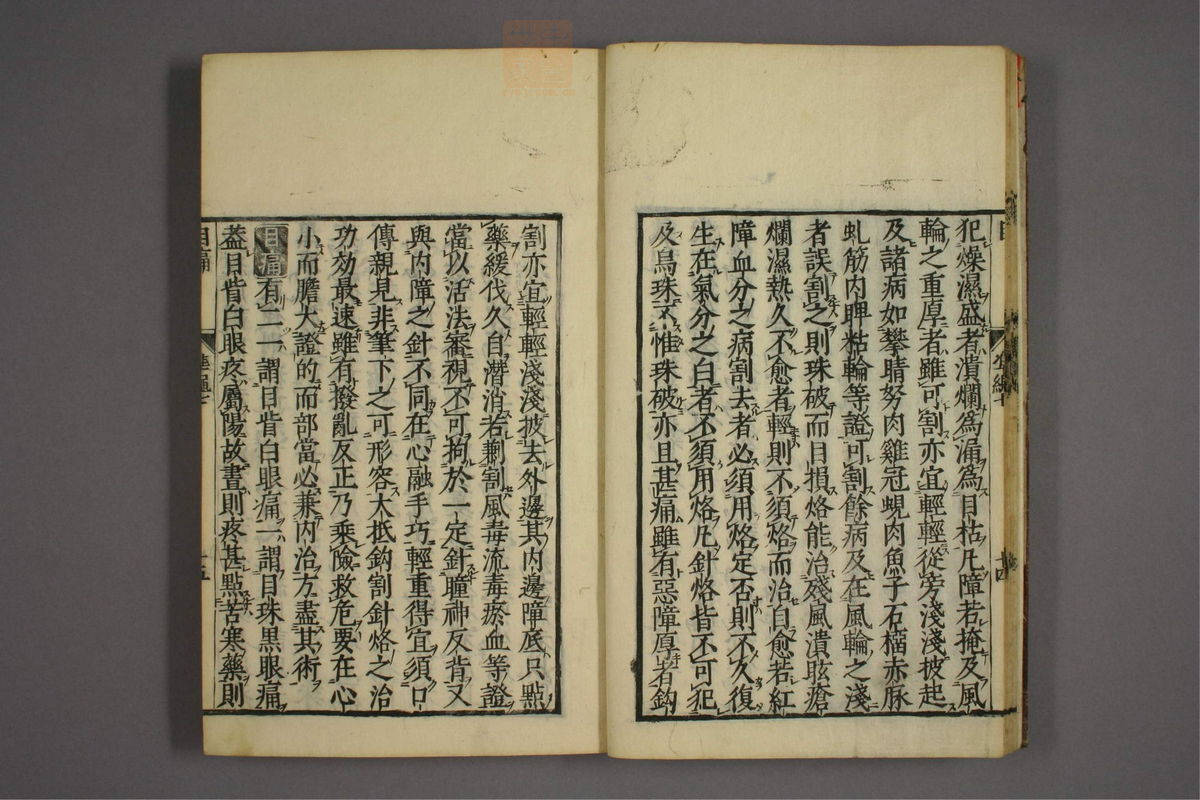 犯燥濕盛者潰爛爲漏爲目枯凡障若掩及風
輪之重厚者雖可割亦宜輕輕從旁淺淺披起
及諸病如攀睛努肉雞冠蜆肉魚子石榴赤脉
虬筋內睥粘輪等證可割餘病及在風輪之淺
者誤割之則珠破而目損烙能治殘風潰眩瘡
爛濕熱久不愈者輕則不須烙而治自愈若紅
障血分之病割去者必須用烙定否則不久復
生在氣分之白者不須用烙凡針烙皆不可犯
及鳥珠不惟珠破亦且甚痛雖有惡障厚者鈎
割亦宜輕輕淺淺披去外邊其內邊障底只點
藥緩伐久自潛消若劆割風毒流毒瘀血等證
當以活法審視不可拘於一定針瞳神反背又
與內障之針不同在心融手巧輕重得宜須口
傳親見非筆下之可形容大抵鈎割針烙之治
功効最速雖有撥亂反正乃乘險救危要在心
小而膽大證的而部當必兼內治方盡其術
目痛有二一謂目眥白眼痛一謂目珠黑眼痛
葢目眥白眼疼屬陽故晝則疼甚點苦寒藥則
目痛